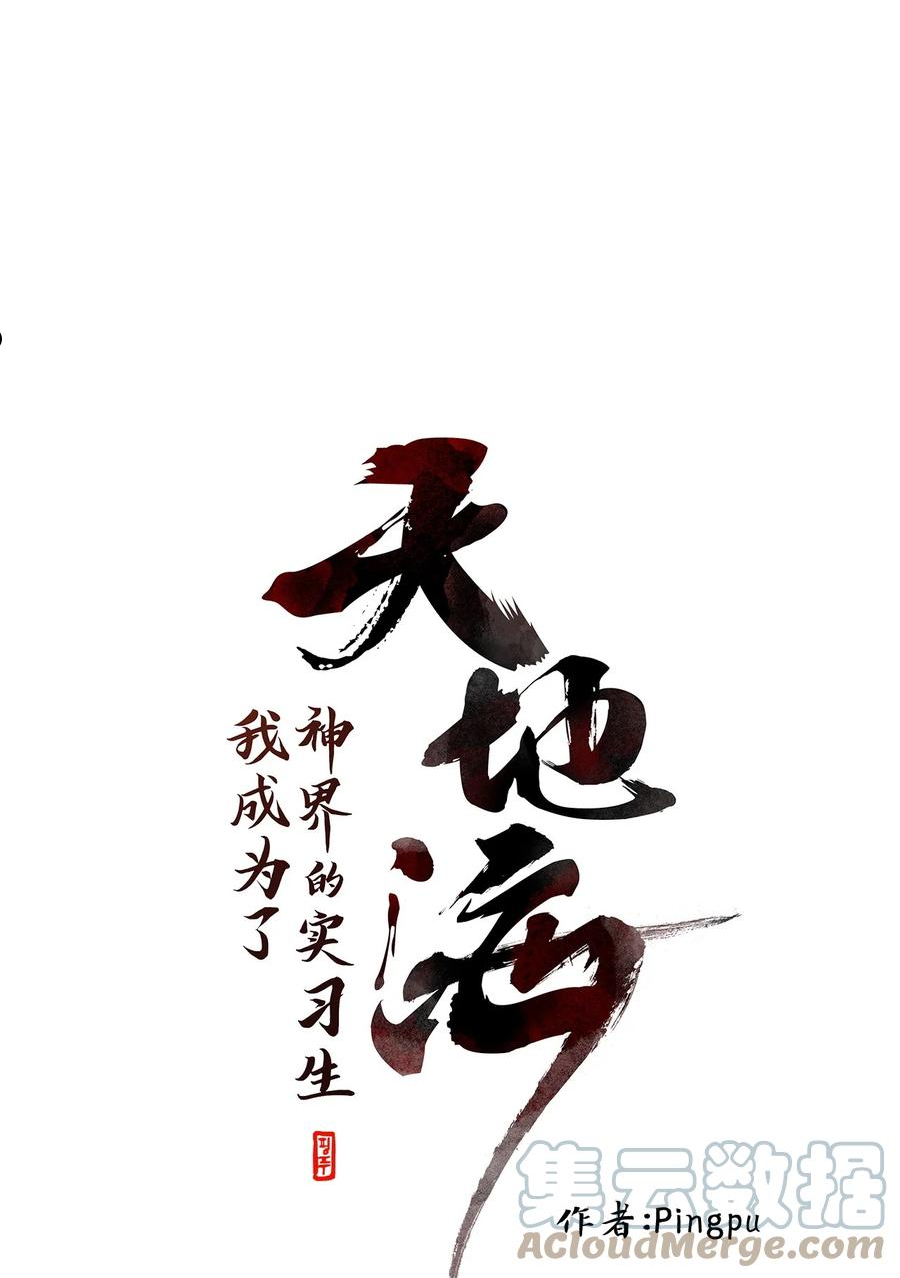 天地海
神界的实习生
我成为了
핑푸
集云数据
作者:Pingpu
ACloudMerge.com